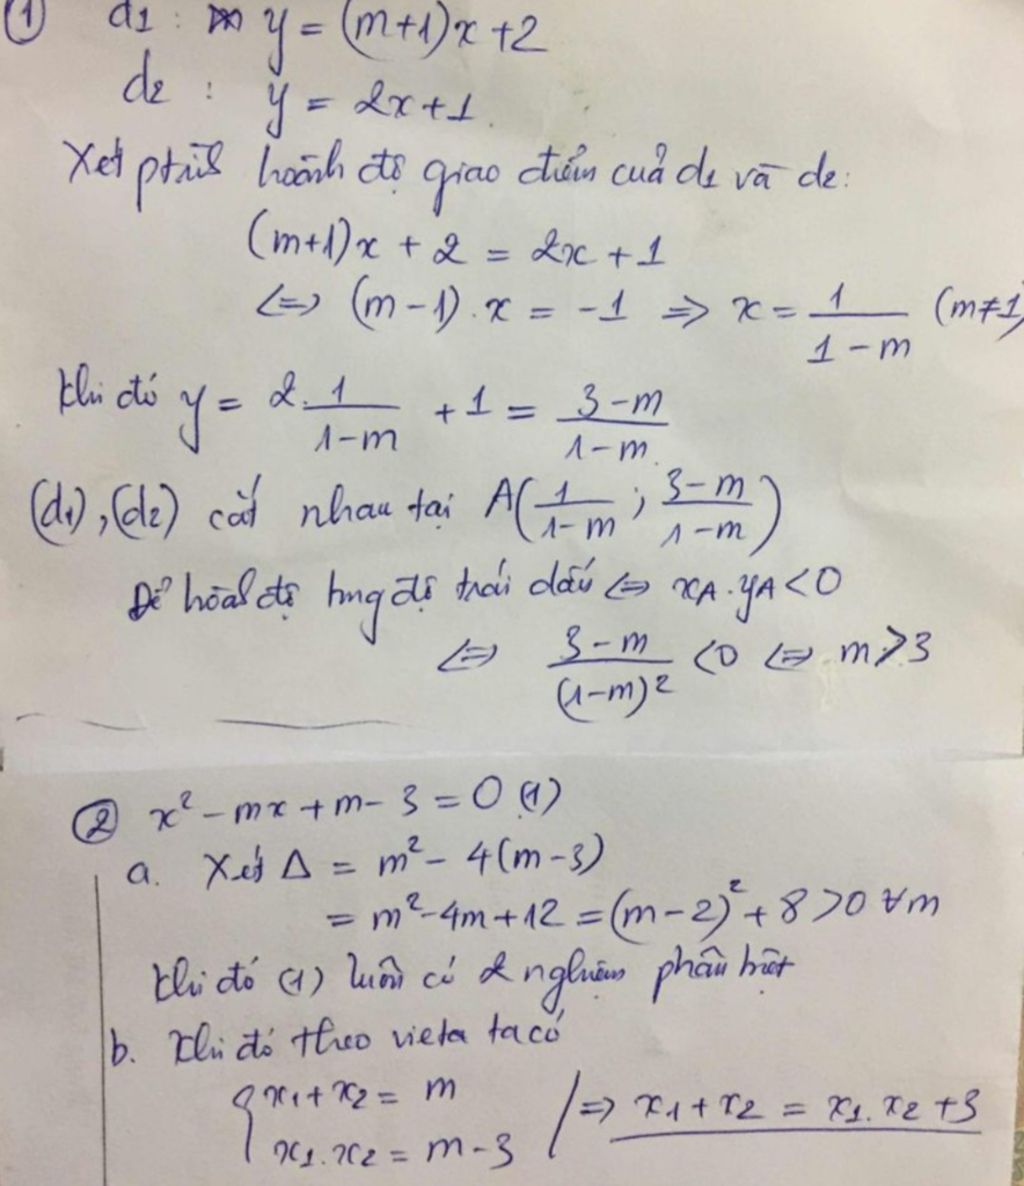 ① d1 : y = (m+1)x + 2
d2 : y = 2x + 1
Xét ptrình hoành độ giao điểm của d1 và d2:
(m+1)x + 2 = 2x + 1
<=> (m-1).x = -1 => x = 1/(1-m) (m≠1)
Khi đó y = 2.1/(1-m) + 1 = (3-m)/(1-m)
(d1), (d2) cắt nhau tại A(1/(1-m) ; (3-m)/(1-m))
Để hoành độ tung độ trái dấu <=> xA.yA < 0
<=> (3-m)/(1-m)² < 0 <=> m > 3
② x² - mx + m - 3 = 0 (1)
a. Xét Δ = m² - 4(m-3)
= m² - 4m + 12 = (m-2)² + 8 > 0 ∀m
Khi đó (1) luôn có 2 nghiệm phân biệt
b. Khi đó theo vieta ta có
{ x1 + x2 = m
x1.x2 = m - 3 => x1 + x2 = x1.x2 + 3